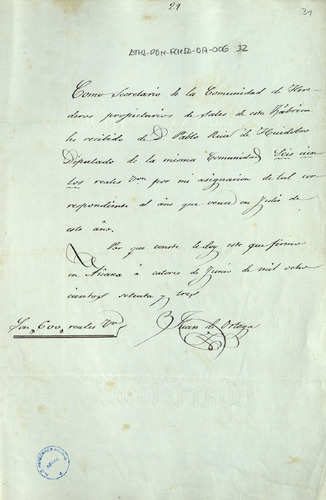 29
34
ATHA-DDN-FCHID-OA-006 32
Como Secretario de la Comunidad de Here
deros propietarios de Sales de esta Fábrica
he recibido de D. Pablo Ruiz de Huidobro
Diputado de la misma Comunidad, Seis cien
tos reales Von por mi asignacion de tal cor
respondiente al año que vence en Julio de
este año.
Por que conste le doy este que firmo
en Añana á catorce de Junio de mil ocho
cientos setenta y tres
Son, 600, reales Von
Juan de Ortega